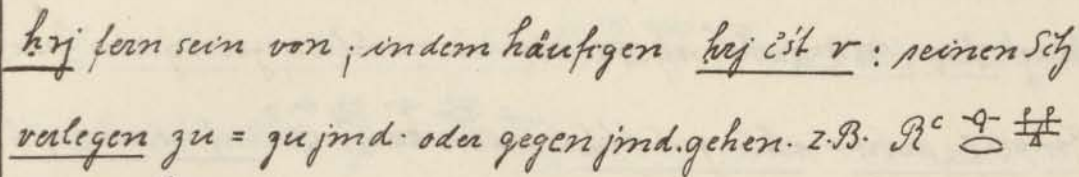 ḥrj fern sein von; in dem häufigen ḥrj ı͗śt r : seinen Sitz
verlegen zu = zu jmd. oder gegen jmd. gehen. z.B. Rᶜ